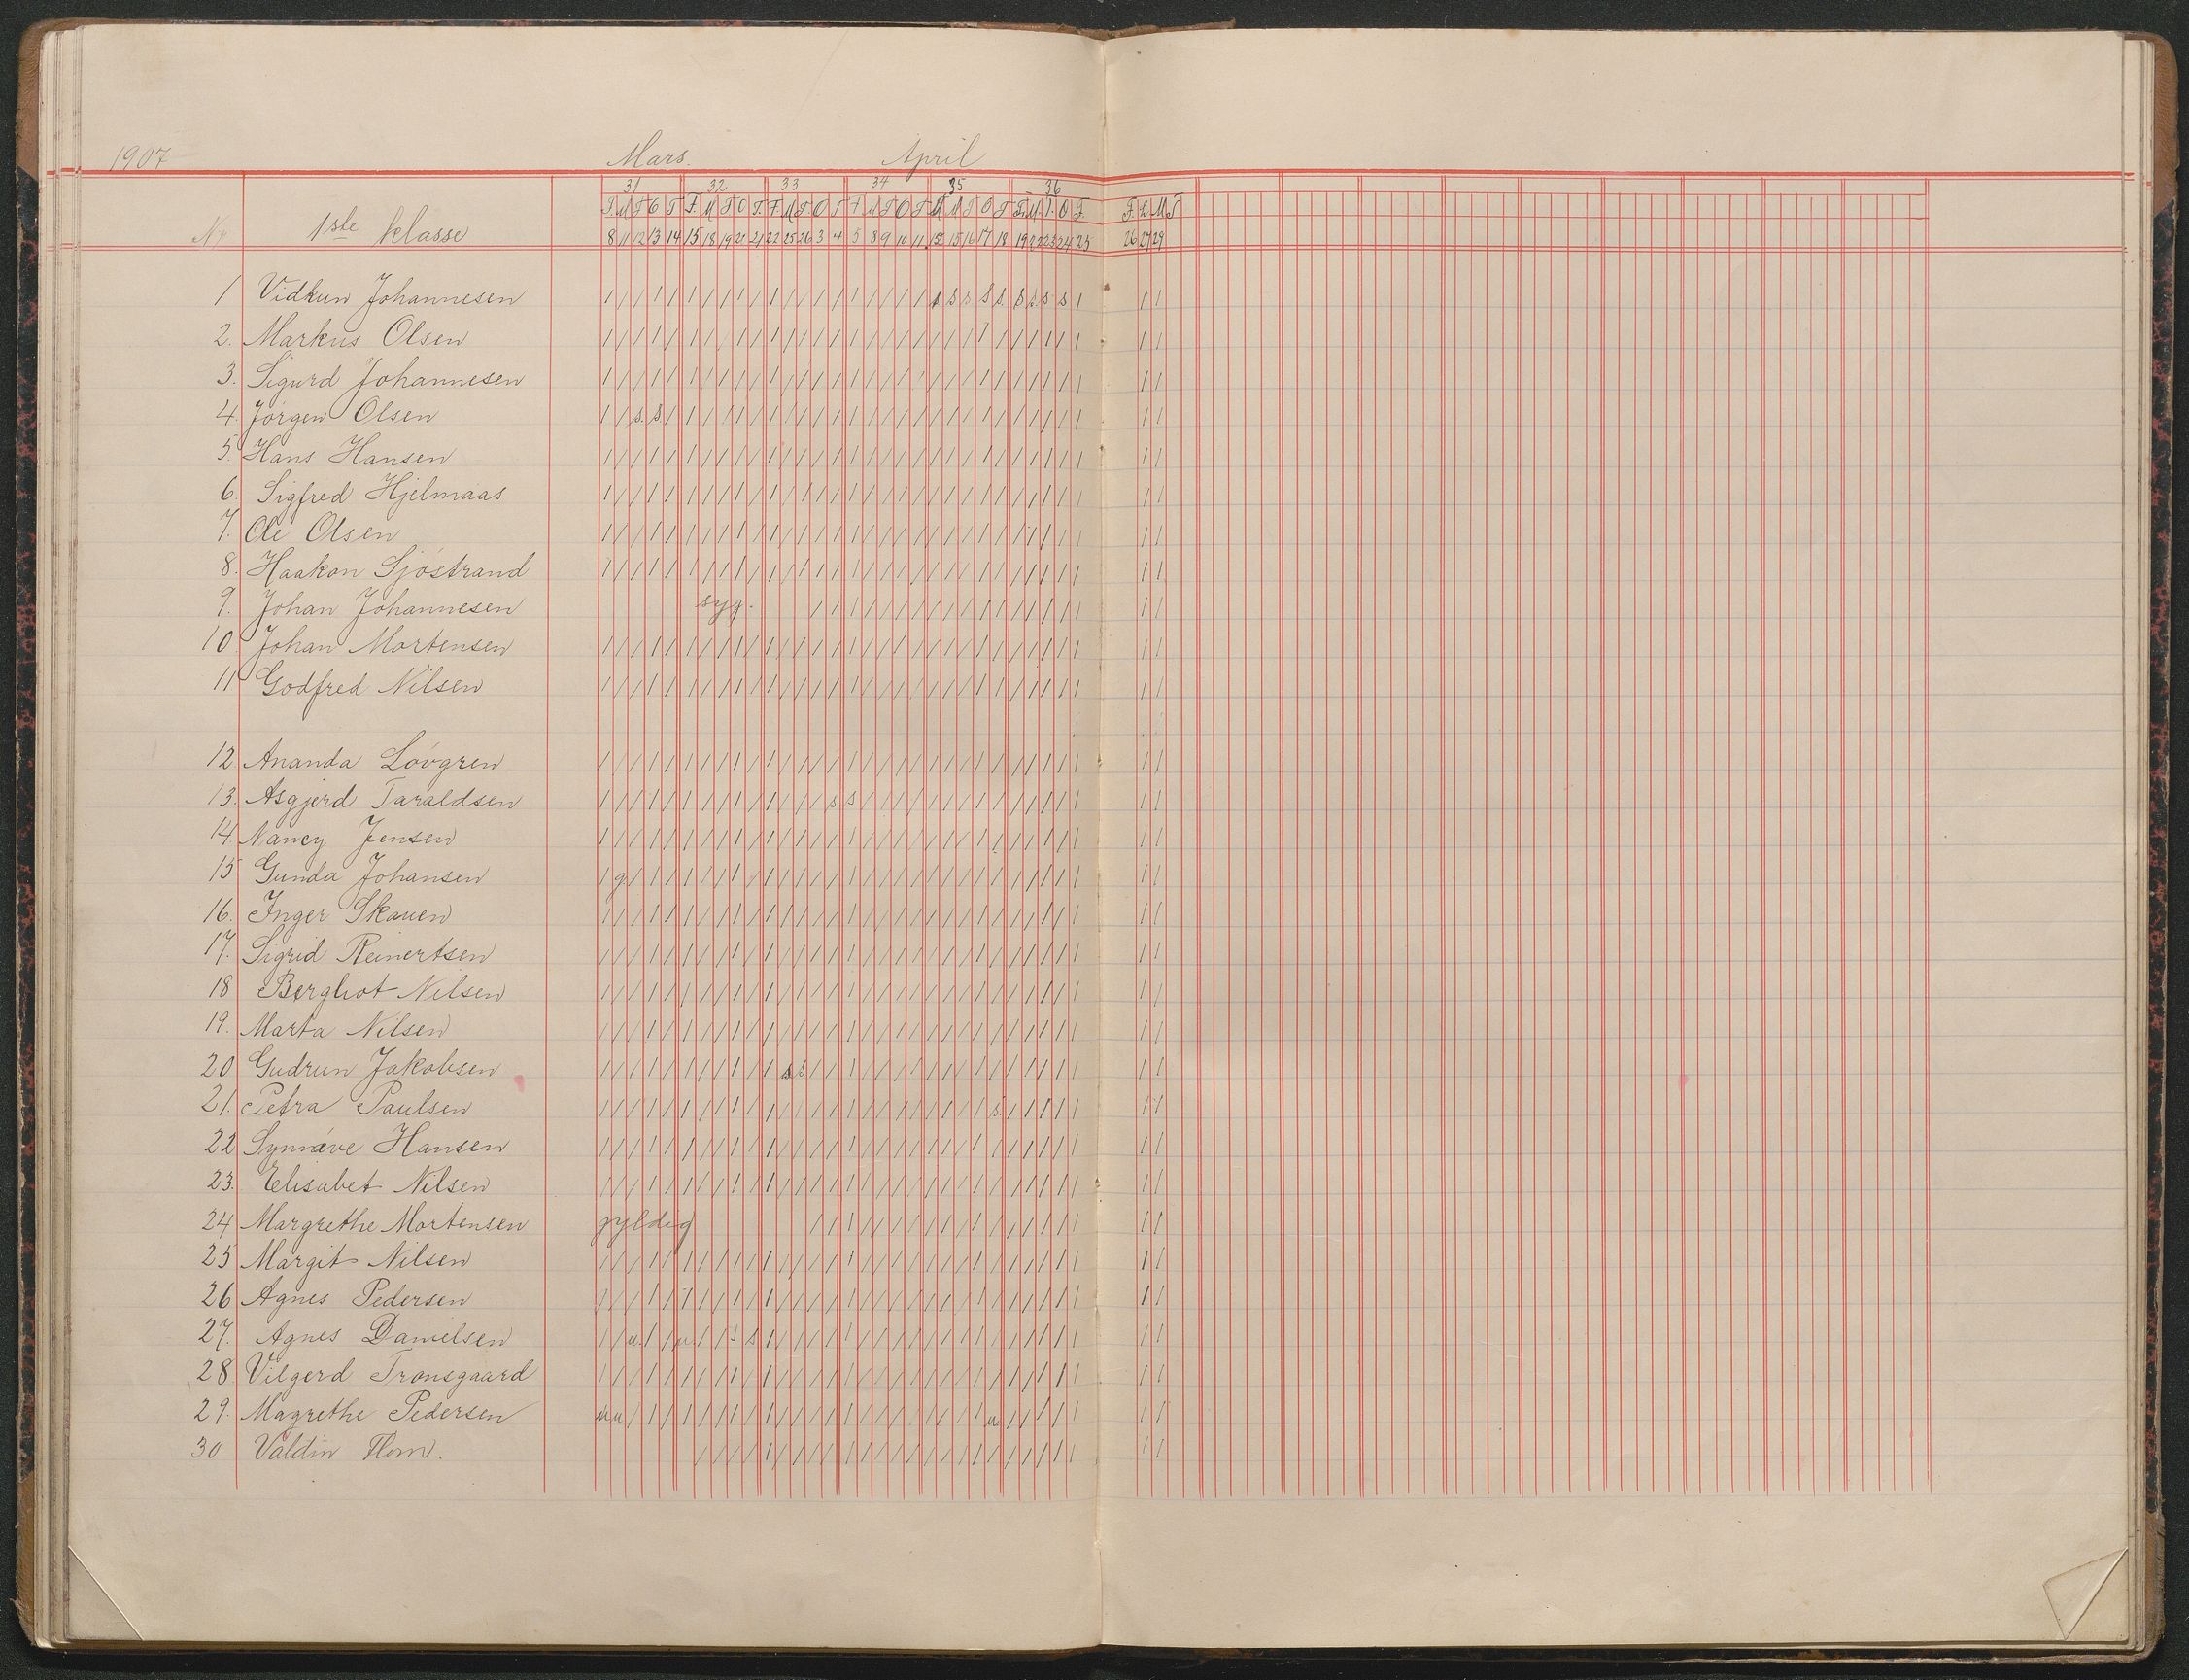 1907 Mars. April
31 32 33 34 35 36
No 1ste klasse F. M T O T F. M T O T. F. M T. O T F M T O T M M T O T F. M. T. O F. F. L. M T
8 11 12 13 14 15 18 19 20 21 22 25 26 3 4 5 8 9 10 11 12 15 16 17 18 19 22 23 24 25 26 27 29
1 Vidkun Johannesen / / / / / / / / / / / / / / / / / / / / s s s s s. s s. s s / / /
2. Markus Olsen / / / / / / / / / / / / / / / / / / / / / / / / / / / / / / / /
3. Sigurd Johannesen / / / / / / / / / / / / / / / / / / / / / / / / / / / / / / / /
4. Jörgen Olsen / / s. s. / / / / / / / / / / / / / / / / / / / / / / / / / / / /
5. Hans Hansen / / / / / / / / / / / / / / / / / / / / / / / / / / / / / / / /
6. Sigfred Hjelmaas / / / / / / / / / / / / / / / / / / / / / / / / / / / / / / / /
7. Ole Olsen / / / / / / / / / / / / / / / / / / / / / / / / / / / / / / / /
8. Haakon Sjöstrand / / / / / / / / / / / / / / / / / / / / / / / / / / / / / / / /
9. Johan Johannesen syg. / / / / / / / / / / / / / / / / / / /
10 Johan Mortensen / / / / / / / / / / / / / / / / / / / / / / / / / / / / / / / /
11 Godfred Nilsen / / / / / / / / / / / / / / / / / / / / / / / / / / / / / / / /
12 Ananda Lövgren / / / / / / / / / / / / / / / / / / / / / / / / / / / / / / / /
13. Asgjerd Taraldsen / / / / / / / / / / / / / / s s / / / / / / / / / / / / / / / /
14 Nancy Jensen / / / / / / / / / / / / / / / / / / / / / / / / / / / / / / / /
15 Gunda Johansen / g / / / / / / / / / / / / / / / / / / / / / / / / / / / / / /
16. Inger Skauen / / / / / / / / / / / / / / / / / / / / / / / / / / / / / / / /
17. Sigrid Reinertsen / / / / / / / / / / / / / / / / / / / / / / / / / / / / / / / /
18 Bergliot Nilsen / / / / / / / / / / / / / / / / / / / / / / / / / / / / / / / /
19. Marta Nilsen / / / / / / / / / / / / / / / / / / / / / / / / / / / / / / / /
20 Gudrun Jakobsen / / / / / / / / / / / s s / / / / / / / / / / / / / / / / / / /
21. Petra Paulsen / / / / / / / / / / / / / / / / / / / / / / / / s / / / / / / /
22 Synnöve Hansen / / / / / / / / / / / / / / / / / / / / / / / / / / / / / / / /
23. Elisabet Nilsen / / / / / / / / / / / / / / / / / / / / / / / / / / / / / / / /
24 Margrethe Mortensen gyldig / / / / / / / / / / / / / / / / / / /
25 Margit Nilsen / / / / / / / / / / / / / / / / / / / / / / / / / / / / / / / /
26 Agnes Pedersen / / / / / / / / / / / / / / / / / / / / / / / / / / / / / / / /
27. Agnes Danielsen / / u. / / u. / / s s / / / / / / / / / / / / / / / / / / / / / /
28 Vilgerd Tronsgaard / / / / / / / / / / / / / / / / / / / / / / / / / / / / / / / /
29. Magrethe Pedersen u u / / / / / / / / / / / / / / / / / / / / / / u / / / / / / /
30 Valdin Flom. / / / / / / / / / / / / / / / / / / / / / / / / / /